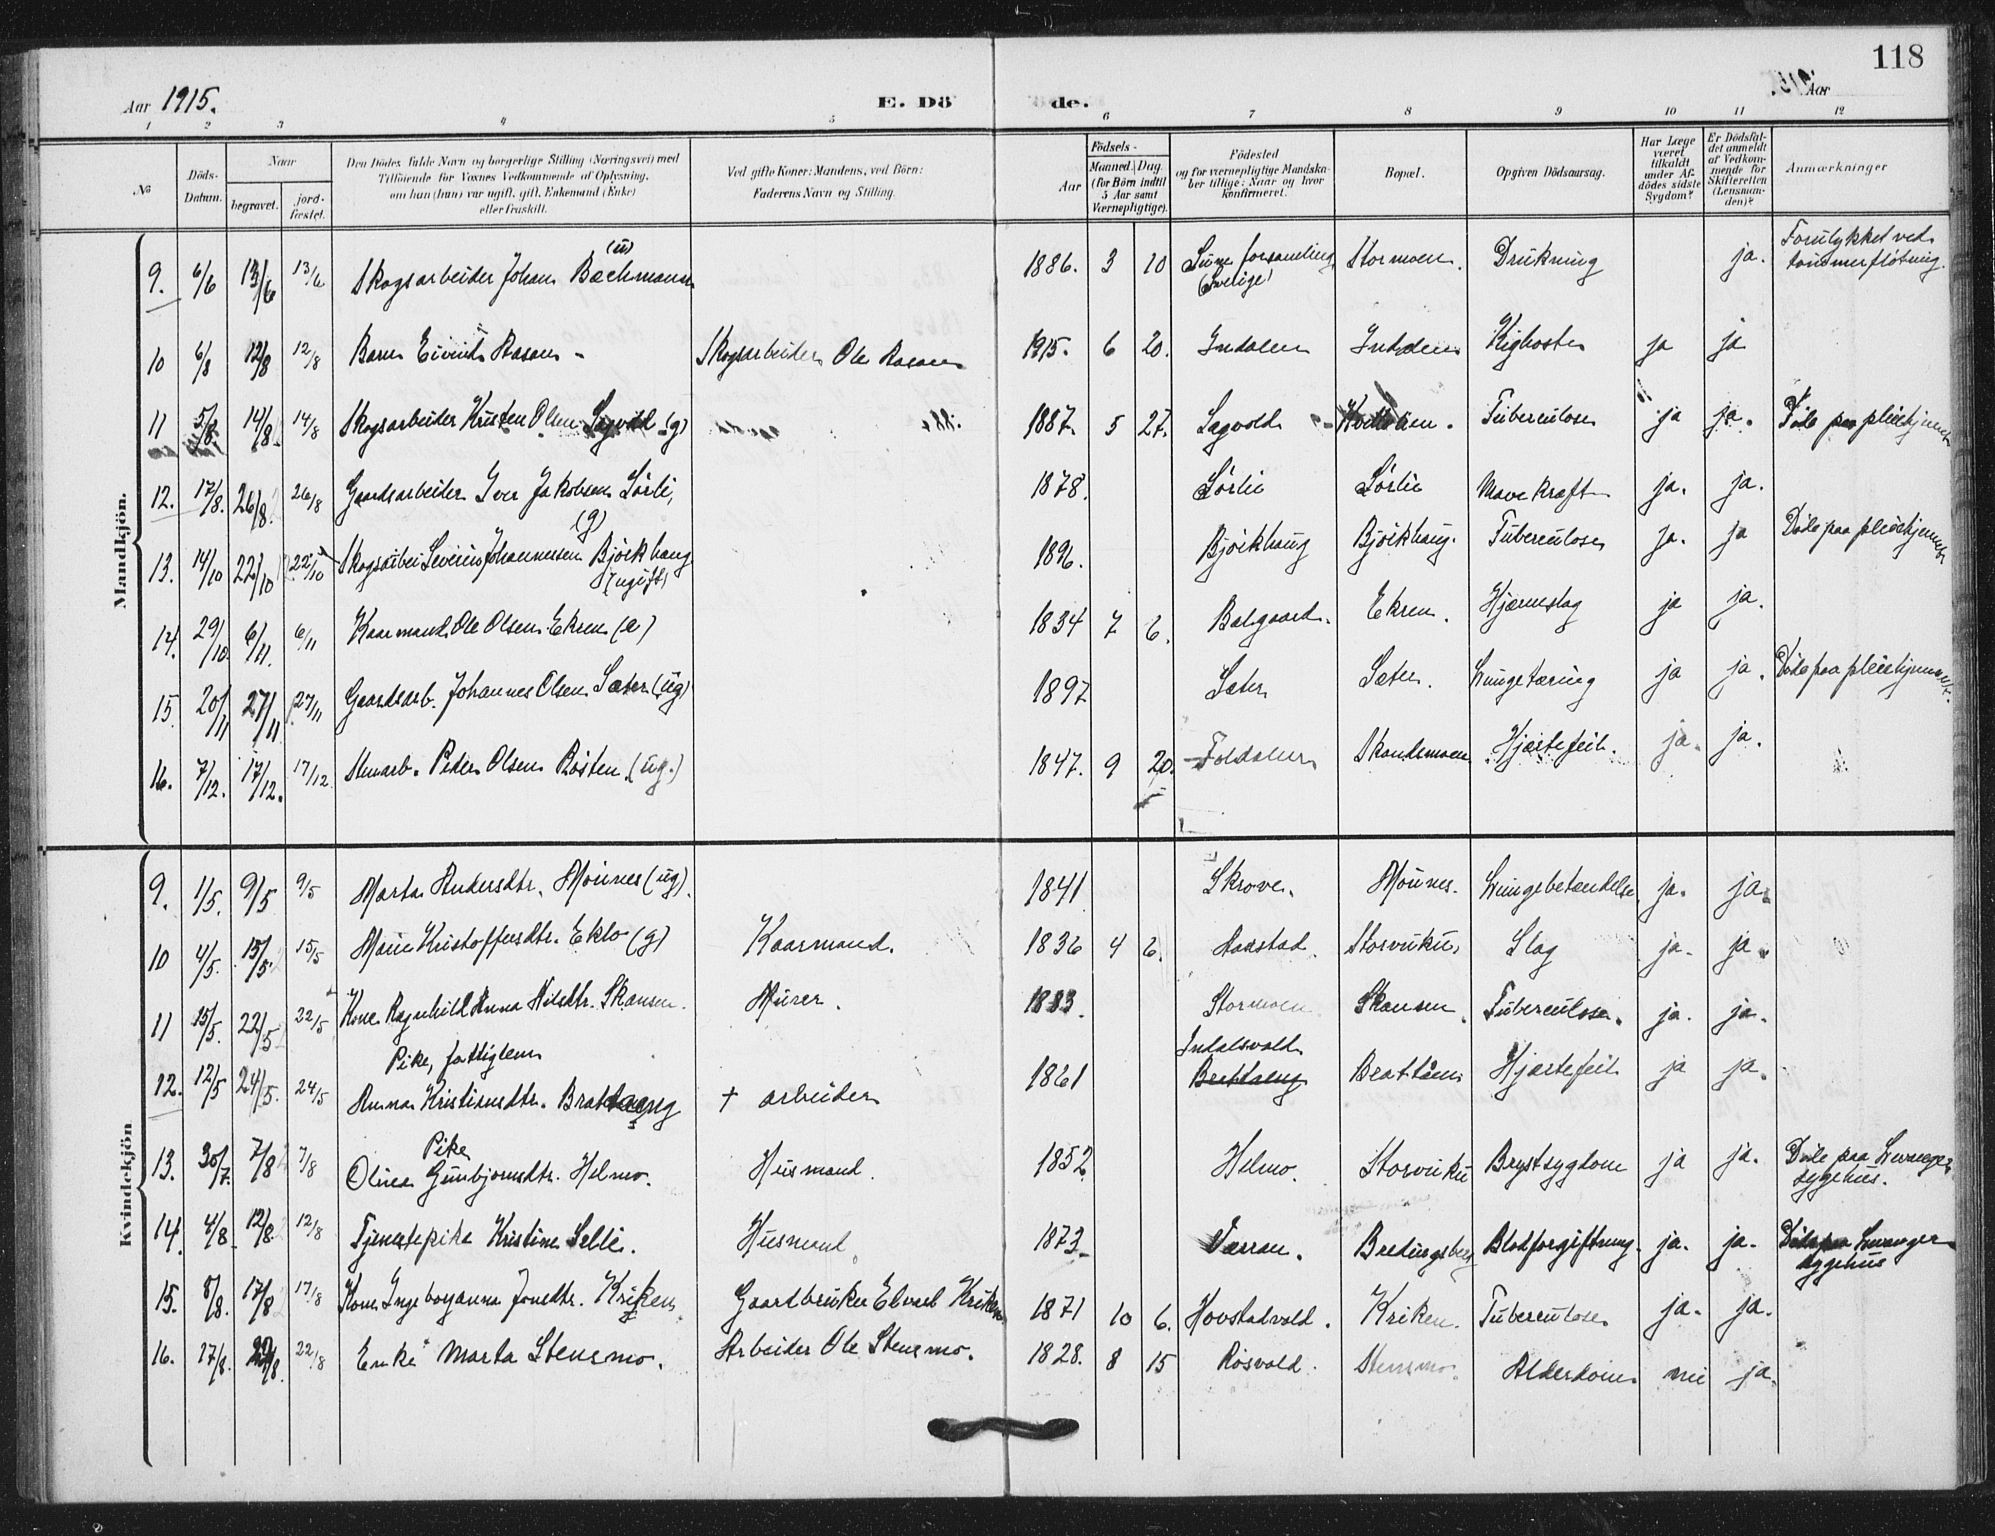 118
Aar 1915. E. Dö de. Aar
1 2 3 4 5 6 7 8 9 10 11 12
No
Döds-Datum.
Naar
begravet.
jord-fæstet.
Den Dödes fulde Navn og borgerlige Stilling (Næringsvei) med
Tilföiende for Voxnes Vedkommende af Oplysning,
om han (hun) var ugift, gift, Enkemand (Enke)
eller fraskilt.
Ved gifte Koner: Mandens, ved Börn:
Faderens Navn og Stilling.
Födsels-
Aar
Maaned. Dag
(for Börn indtil
5 Aar samt
Værnepligtige).
Födested
og for værnepligtige Mandska-
ber tillige: Naar og hvor
konfirmeret.
Bopæl.
Opgiven Dödsaarsag.
Har Læge
været
tilkaldt
under Af-
dödes sidste
Sygdom?
Er Dödsfal-
det anmeldt
af Vedkom-
mende for
Skifteretten
(Lensman-
den)?
Anmærkninger
Mandkjön.
9. 6/6 13/6 13/6 Skogsarbeider Johan Bachmann 1886. 3 10 forsamling Stormoen. Drukning ja. Forulykket ved
tømmerfløtning.
10 6/8 12/8 12/8 Barn Eivind Skogsarbeider Ole 1915. 6 20. Indalen Indalen Kighoste ja ja
11 5/8 14/8 14/8 Skogsarbeider Kristen Olsen Sagvold (g) 1887. 5 27. Sagvold Tuberculose ja ja. Døde paa pleiehjemmet
12. 17/8. 26/8. 26/8 Gaardsarbeider Iver Jakobsen Sørli,
(g) 1878. Sørlie Sørlie Mave kræft ja. ja.
13. 14/10 22/10 22/10 Skogsarbei Severin Johannessen Bjørkhaug
(ugift) 1896. Bjørkhaug Bjørkhaug. Tuberculose ja. ja Døde paa pleiehjemmet
14. 29/10. 6/11. 6/11 Kaarmand Ole Olsen Ekren (e) 1834 7 6. Balgaard. Ekren. Hjærneslag ja ja.
15. 20/11 27/11 27/11 Gaardsarb. Johannes Olsen Sæter (ug) 1897 Sæter Sæter. Lungetæring ja ja. Døde paa pleiehjemmet.
16. 7/12. 17/12. 17/12 Stenarb. Peder Olsen Røsten (ug.) 1847. 9 20. Foldalen Skandsmoen Hjertefeil. ja. ja.
Kvindekjön
9. 1/5. 9/5 9/5 Marta Andersdtr. Mønnes (ug). 1841 Skrove. Mønnes. Lungebetændelse ja. ja.
10 4/5. 15/5. 15/5 Marie Kristoffersdtr. Eklo (g) Kaarmand. 1836 4 6. Storvuku, Slag ja. ja.
11 15/5. 22/5 22/5 Kone Ragnhild Anna Nilsdtr. Skansen. Murer. 1883. Stormoen Skansen. Tuberculose. ja. ja.
12. 12/5 24/5. 24/5 Pike, fattiglem
Anna Kristiansdtr. Brattaeng + arbeider 1861 Indalsvold
Brattaeng Hjertefeil ja ja.
13. 30/7. 7/8 7/8 Pike
Olina Gunbjørnsdtr. Helmo. Husmand. 1852. Helmo. Storvuku Brystsygdom ja ja. Døde paa Levanger
sygehus.
14. 4/8 12/8. 12/8 Tjenestepike Kristine Selli. Husmand. 1873. Værran. Bredingsberg Blodforgiftning. ja. ja. Døde paa Levanger
sygehus
15. 8/8. 17/8 17/8 Kone Ingeborganna Jonsdtr. Kriken. Gaardbruker Edvard Kriken 1871 10 6. Hovstadvald. Kriken. Tuberculose ja. ja.
16. 17/8. 22/8. 22/8 Enke Marta Stensmo. Arbeider Ole Stensmo. 1828. 8 15 Røsvold. Stensmo. Alderdom nei ja.